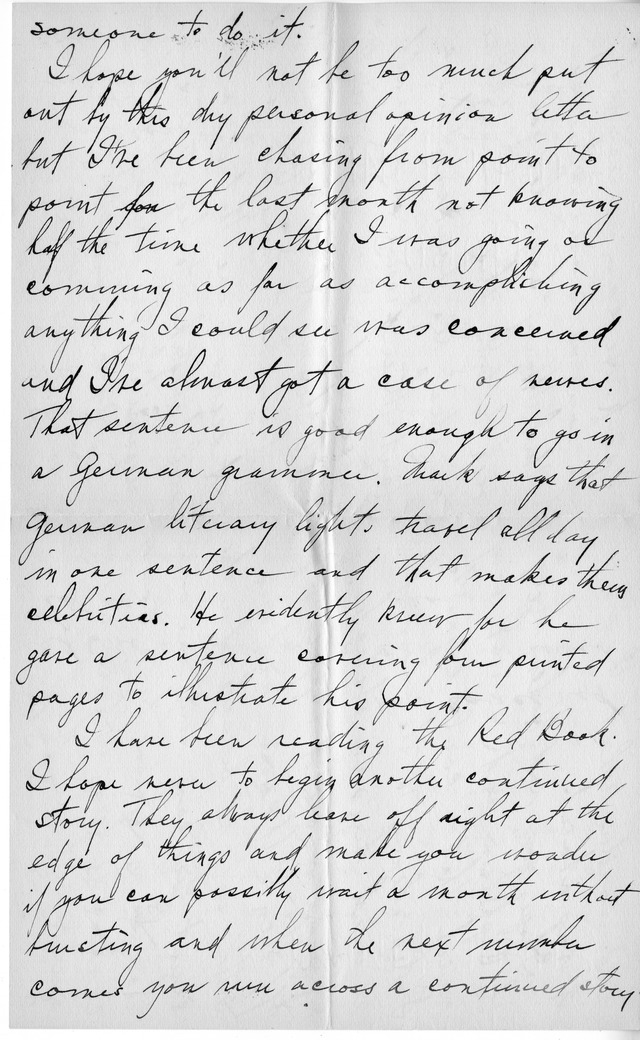 someone to do it.
I hope you'll not be too much put
out by this dry personal opinion letter
but I've been chasing from point to
point for the last month not knowing
half the time whether I was going or
comming as far as accomplishing
anything I could see was concerned
and I've almost got a case of nerves.
That sentence is good enough to go in
a German grammer. Mark says that
German literary lights travel all day
in one sentence and that makes them
celebrities. He evidently knew for he
gave a sentence covering four printed
pages to illustrate his point.
I have been reading the Red Book.
I hope never to begin another continued
story. They always leave off right at the
edge of things and make you wonder
if you can possibly wait a month without
bursting and when the next number
comes you run across a continued story